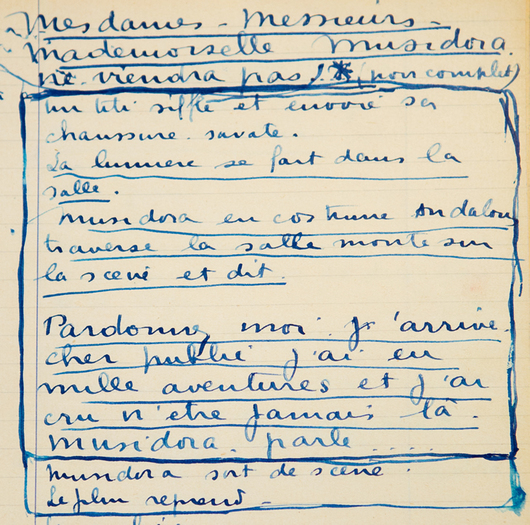 Mesdames - Messieurs -
Mademoiselle Musidora
ne viendra pas !* (noir complet)
un titi siffle et envoie sa
chaussure. savate.
La lumiere se fait dans la
salle.
Musidora en costume Andalou
traverse la salle monte sur
la scene et dit.
Pardonnez moi j'arrive
cher public j'ai eu
mille aventures et j'ai
cru n'etre jamais là.
Musidora parle ....
Musidora sort de scène.
Le film reprend -